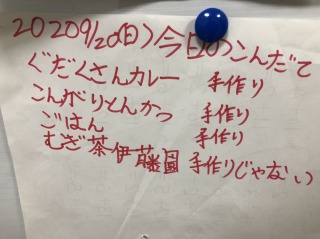 20209/20(日)今日のこんだて
ぐだくさんカレー 手作り
こんがりとんかつ 手作り
ごはん 手作り
むぎ茶伊藤園 手作りじゃない